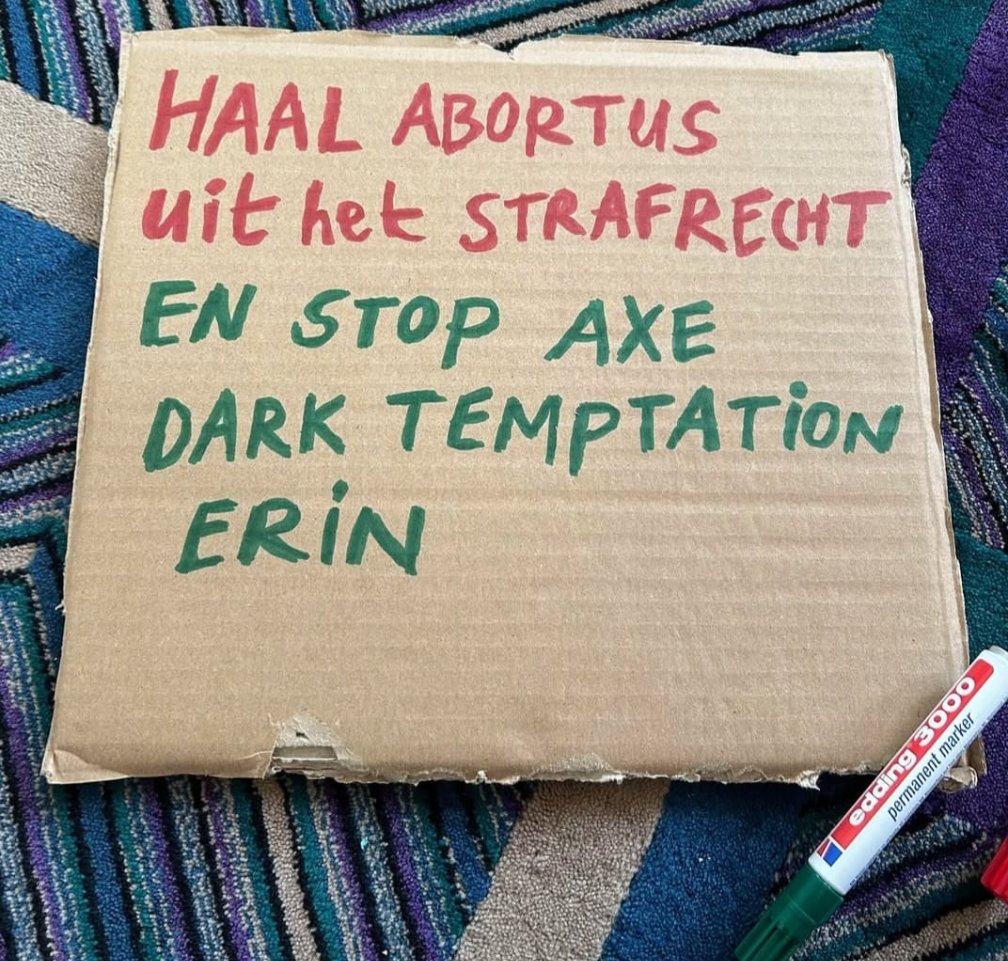 HAAL ABORTUS
uit het STRAFRECHT
EN STOP AXE
DARK TEMPTATiON
ERiN
edding 3000
permanent marker